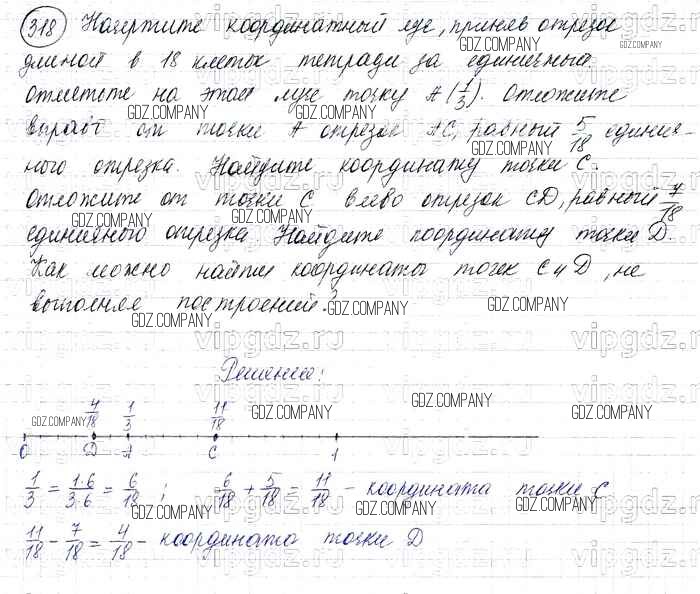 318 Начертите координатный луч, приняв отрезок
длиной в 18 клеток тетради за единичный
отметьте на этом луче точку A(1/3). Отложите
вправо от точки A отрезок AC, равный 5/18 единич-
ного отрезка. Найдите координату точки C.
Отложите от точки C влево отрезок CD, равный 7/18
единичного отрезка Найдите координату точки D.
Как можно найти координаты точек C и D, не
выполняя построений?
Решение:
4/18 1/3 11/18
0 D A C 1
1/3 = 1·6/3·6 = 6/18 ; 6/18 + 5/18 = 11/18 - координата точки C
11/18 - 7/18 = 4/18 - координата точки D
GDZ.COMPANY
vipgdz.ru